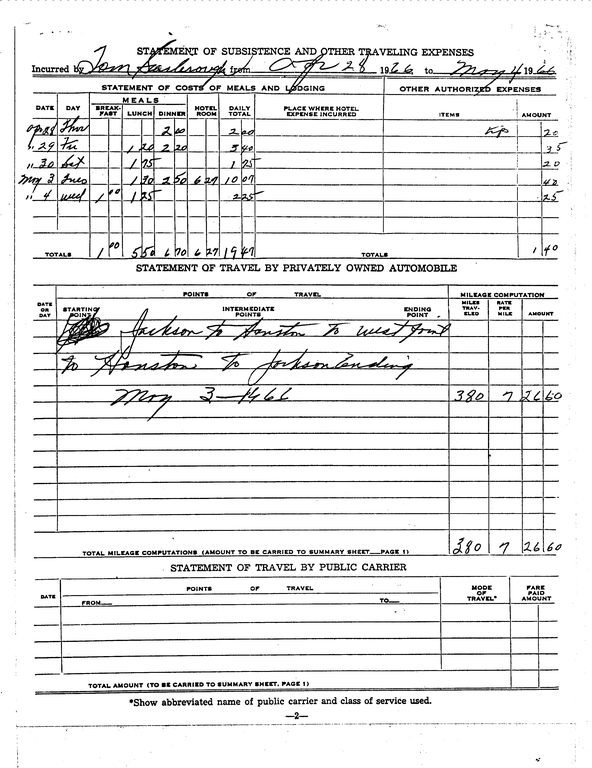 STATEMENT OF SUBSISTENCE AND OTHER TRAVELING EXPENSES
Incurred by Tom Scarborough from Apr 28 1966 to May 4 1966
STATEMENT OF COSTS OF MEALS AND LODGING OTHER AUTHORIZED EXPENSES
DATE DAY MEALS BREAK-FAST LUNCH DINNER HOTEL ROOM DAILY TOTAL PLACE WHERE HOTEL EXPENSE INCURRED ITEMS AMOUNT
Apr 28 Thur 2 00 2 00 20
" 29 Fri 1 20 2 20 3 40 35
" 30 Sat 1 75 1 75 20
May 3 Tues 1 30 2 50 6 27 10 07 40
" 4 Wed 1 00 1 25 2 25 25
TOTALS 1 00 5 50 6 70 6 27 19 47 TOTALS 1 40
STATEMENT OF TRAVEL BY PRIVATELY OWNED AUTOMOBILE
DATE OR DAY POINTS OF TRAVEL MILEAGE COMPUTATION
STARTING POINT INTERMEDIATE POINTS ENDING POINT MILES TRAV-ELED RATE PER MILE AMOUNT
Jackson to Houston to West Point
to Houston to Jackson ending
May 3-1966 380 7 26 60
TOTAL MILEAGE COMPUTATIONS (AMOUNT TO BE CARRIED TO SUMMARY SHEET—PAGE 1) 380 7 26 60
STATEMENT OF TRAVEL BY PUBLIC CARRIER
DATE POINTS OF TRAVEL MODE OF TRAVEL* FARE PAID AMOUNT
FROM— TO—
TOTAL AMOUNT (TO BE CARRIED TO SUMMARY SHEET. PAGE 1)
*Show abbreviated name of public carrier and class of service used.
—2—